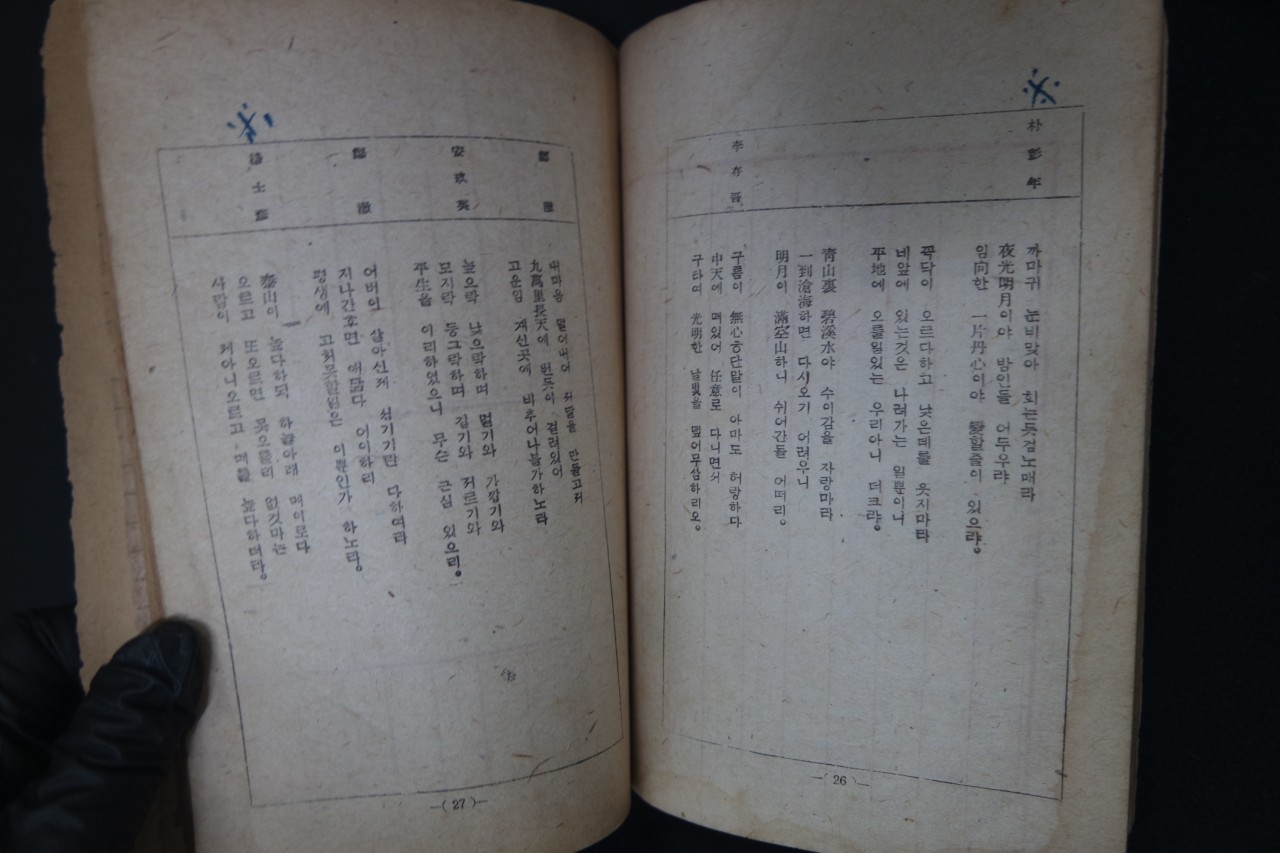 朴彭年
까마귀 눈비맞아 희는듯검노매라
夜光明月이야 밤인들 어두우랴
임向한 一片丹心이야 變할줄이 있으랴。
꼭닥이 오르다하고 낮은데를 웃지마라
네앞에 있는것은 나려가는 일뿐이니
平地에 오를일있는 우리아니 더크랴。
靑山裏 碧溪水야 수이감을 자랑마라
一到滄海하면 다시오기 어려우니
明月이 滿空山하니 쉬어간들 어떠리。
李存吾
구름이 無心ㅎ단말이 아마도 허랑하다
中天에 떠있어 任意로 다니면서
구타여 光明한 날빛을 덮어무삼하리오。
—( 26 )—
鄭澈
내마음 덜어내어 저달을 만들고저
九萬里長天에 번듯이 걸려있어
고운임 계신곳에 비추어나볼가하노라
安玟英
높으락 낮으락하며 멀기와 가깝기와
모지락 둥그락하며 길기와 저르기와
平生을 이리하였으니 무슨 근심 있으리。
鄭澈
어버이 살아신제 섬기기란 다하여라
지나간후면 애닯다 어이하리
평생에 고처못할일은 이뿐인가 하노라。
楊士彦
泰山이 높다하되 하늘아래 메이로다
오르고 또오르면 못오를리 없것마는
사람이 제아니오르고 메를 높다하더라。
—( 27 )—